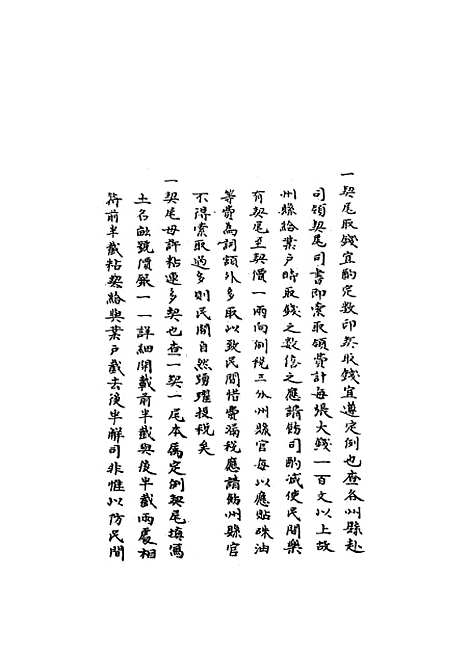 一契尾取錢宜酌定數印契取錢宜遵定例也查各州縣赴
司領契尾司書即索取領費計每張大錢一百文以上故
州縣給業戶時取錢之數倍之應請飭司酌減使民間樂
有契尾至契價一兩向例稅三分州縣官每以應貼硃油
等費為詞額外多取以致民間惜費漏稅應請飭州縣官
不得索取過多則民間自然踴躍投稅矣
一契尾毋許粘連多契也查一契一尾本屬定例契尾填寫
土名畝號價嚴一一詳細開載前半截與後半截兩處相
符前半截粘契給與業戶截去後半解司非惟以防民間